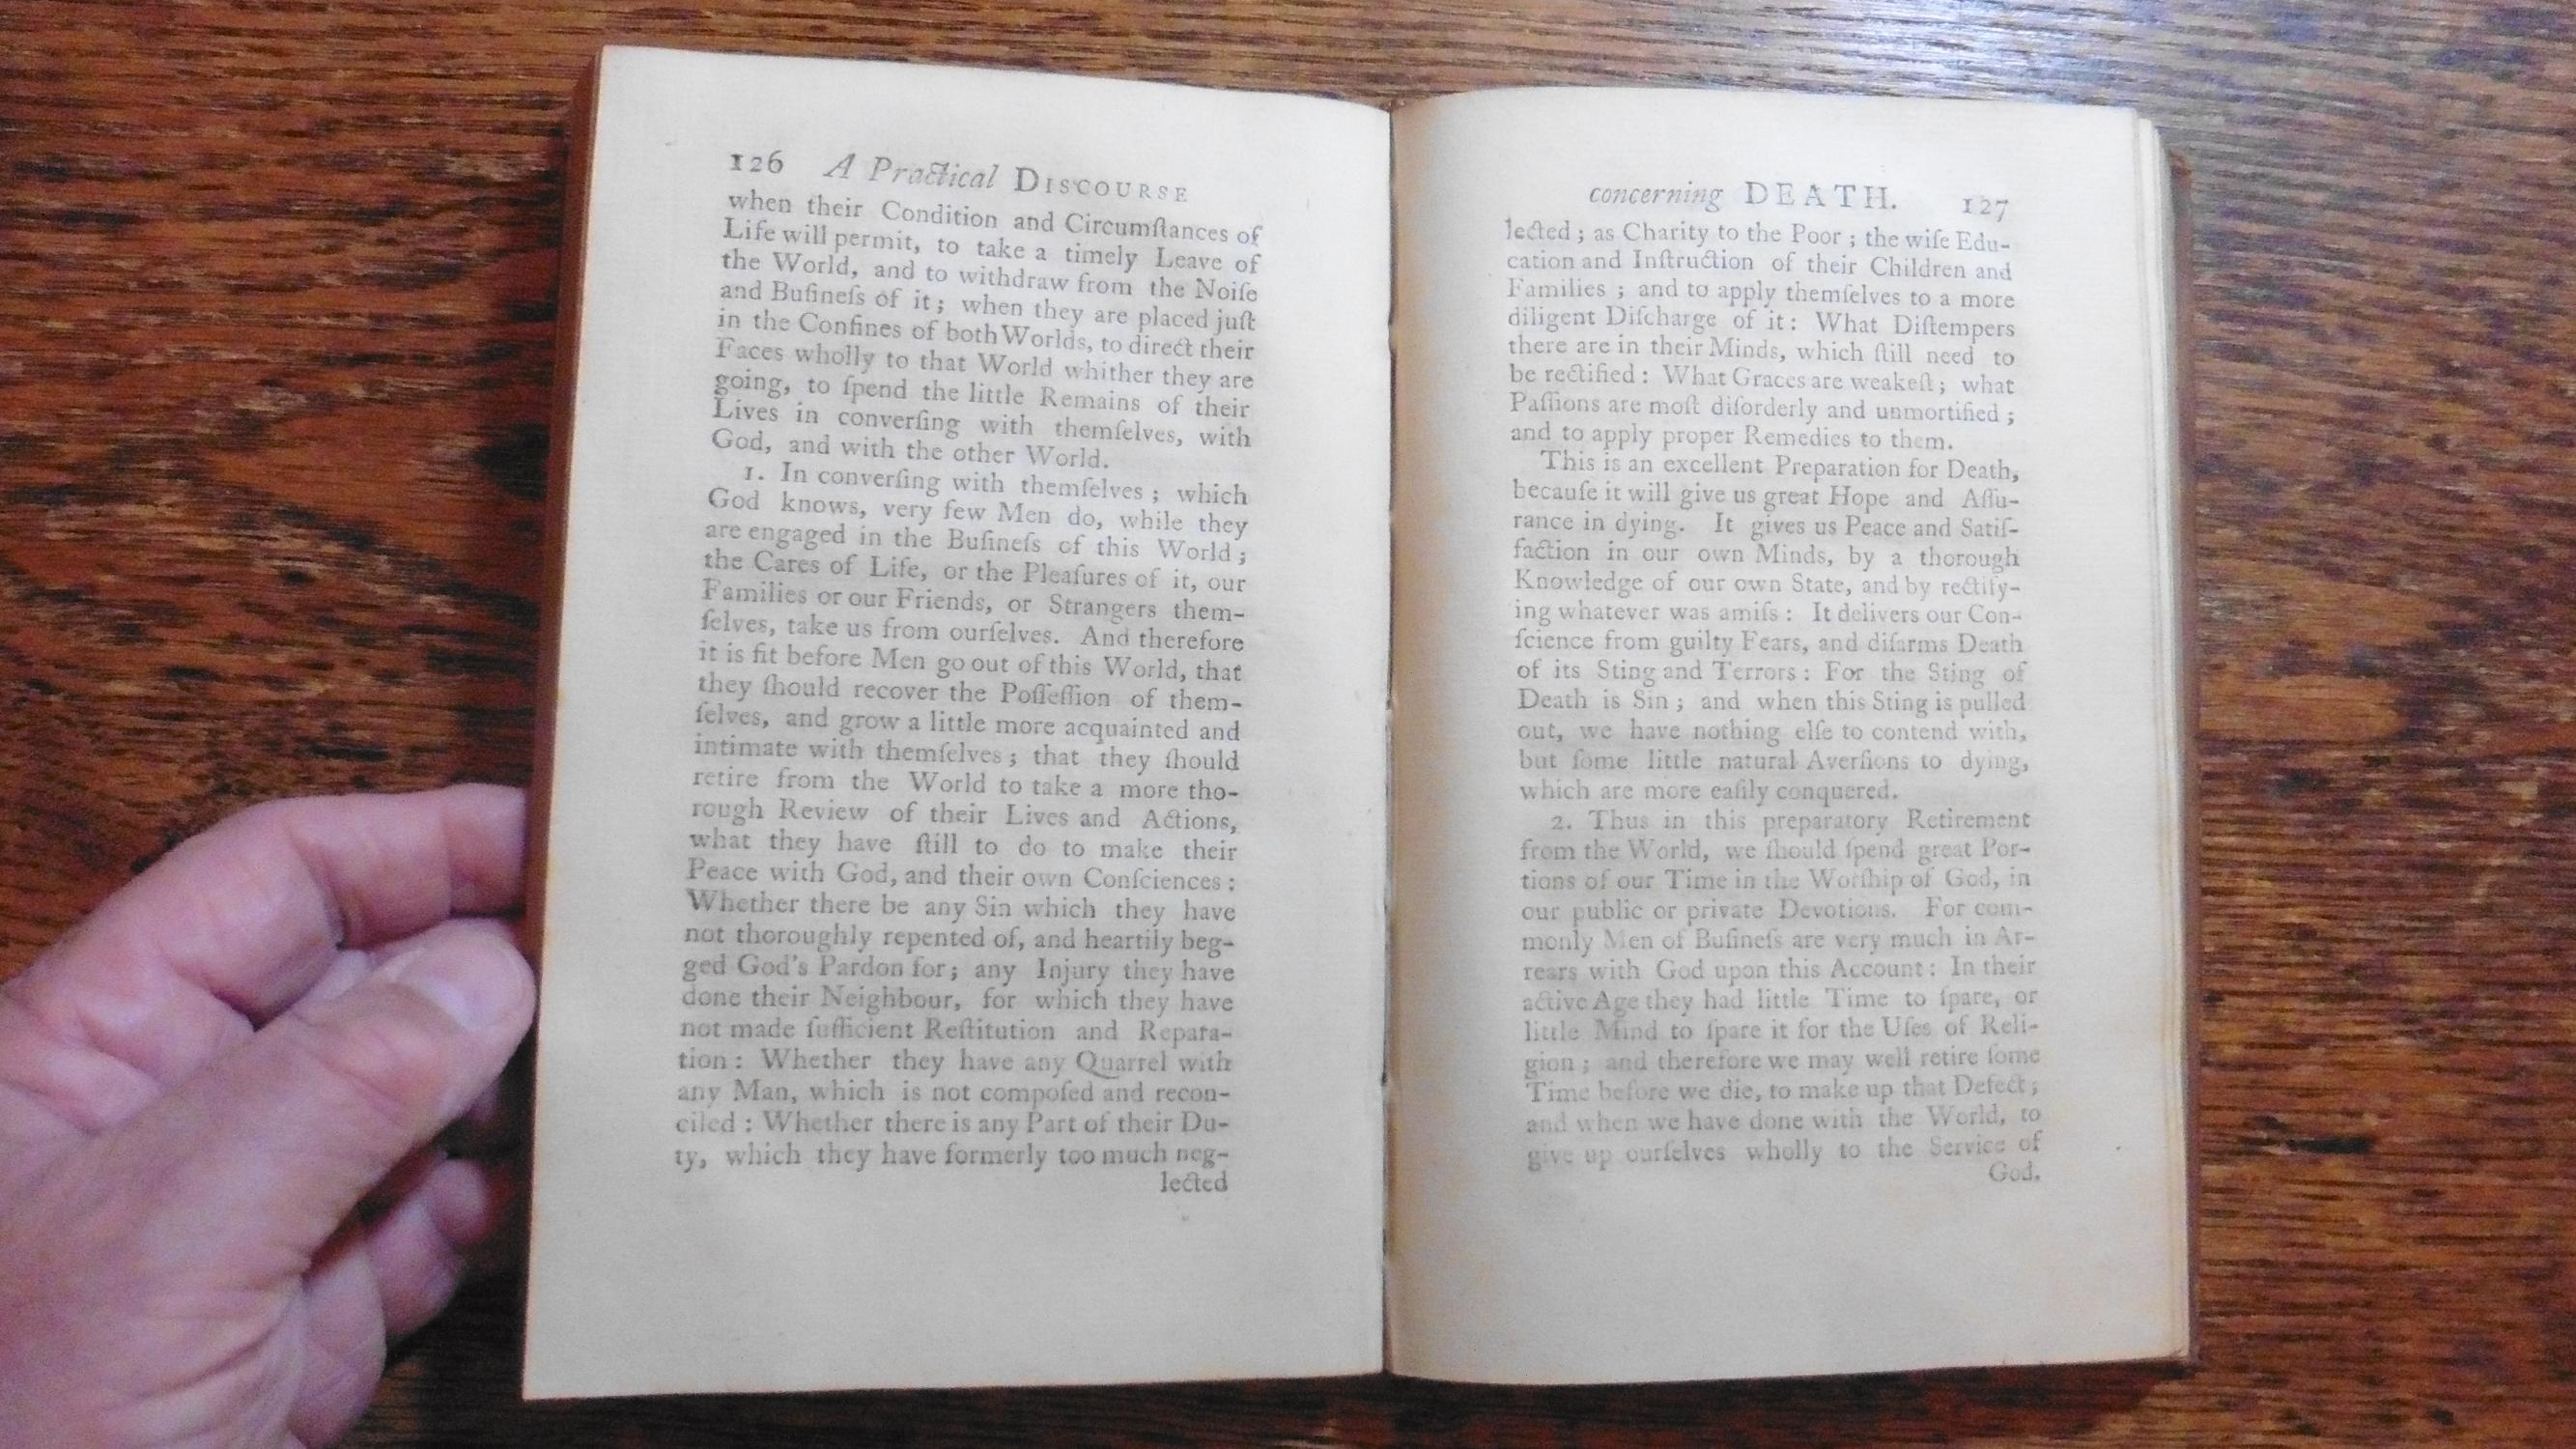 126 A Practical DISCOURSE
when their Condition and Circumſtances of
Life will permit, to take a timely Leave of
the World, and to withdraw from the Noiſe
and Buſineſs of it; when they are placed juſt
in the Confines of both Worlds, to direct their
Faces wholly to that World whither they are
going, to ſpend the little Remains of their
Lives in converſing with themſelves, with
God, and with the other World.
1. In converſing with themſelves; which
God knows, very few Men do, while they
are engaged in the Buſineſs of this World;
the Cares of Life, or the Pleaſures of it, our
Families or our Friends, or Strangers them-
ſelves, take us from ourſelves. And therefore
it is fit before Men go out of this World, that
they ſhould recover the Poſſeſſion of them-
ſelves, and grow a little more acquainted and
intimate with themſelves; that they ſhould
retire from the World to take a more tho-
rough Review of their Lives and Actions,
what they have ſtill to do to make their
Peace with God, and their own Conſciences:
Whether there be any Sin which they have
not thoroughly repented of, and heartily beg-
ged God's Pardon for; any Injury they have
done their Neighbour, for which they have
not made ſufficient Reſtitution and Repara-
tion: Whether they have any Quarrel with
any Man, which is not compoſed and recon-
ciled: Whether there is any Part of their Du-
ty, which they have formerly too much neg-
lected
concerning DEATH. 127
lected; as Charity to the Poor; the wiſe Edu-
cation and Inſtruction of their Children and
Families; and to apply themſelves to a more
diligent Diſcharge of it: What Diſtempers
there are in their Minds, which ſtill need to
be rectified: What Graces are weakeſt; what
Paſſions are moſt diſorderly and unmortified;
and to apply proper Remedies to them.
This is an excellent Preparation for Death,
becauſe it will give us great Hope and Aſſu-
rance in dying. It gives us Peace and Satiſ-
faction in our own Minds, by a thorough
Knowledge of our own State, and by rectify-
ing whatever was amiſs: It delivers our Con-
ſcience from guilty Fears, and diſarms Death
of its Sting and Terrors: For the Sting of
Death is Sin; and when this Sting is pulled
out, we have nothing elſe to contend with,
but ſome little natural Averſions to dying,
which are more eaſily conquered.
2. Thus in this preparatory Retirement
from the World, we ſhould ſpend great Por-
tions of our Time in the Worſhip of God, in
our public or private Devotions. For com-
monly Men of Buſineſs are very much in Ar-
rears with God upon this Account: In their
active Age they had little Time to ſpare, or
little Mind to ſpare it for the Uſes of Reli-
gion; and therefore we may well retire ſome
Time before we die, to make up that Defect;
and when we have done with the World, to
give up ourſelves wholly to the Service of
God.